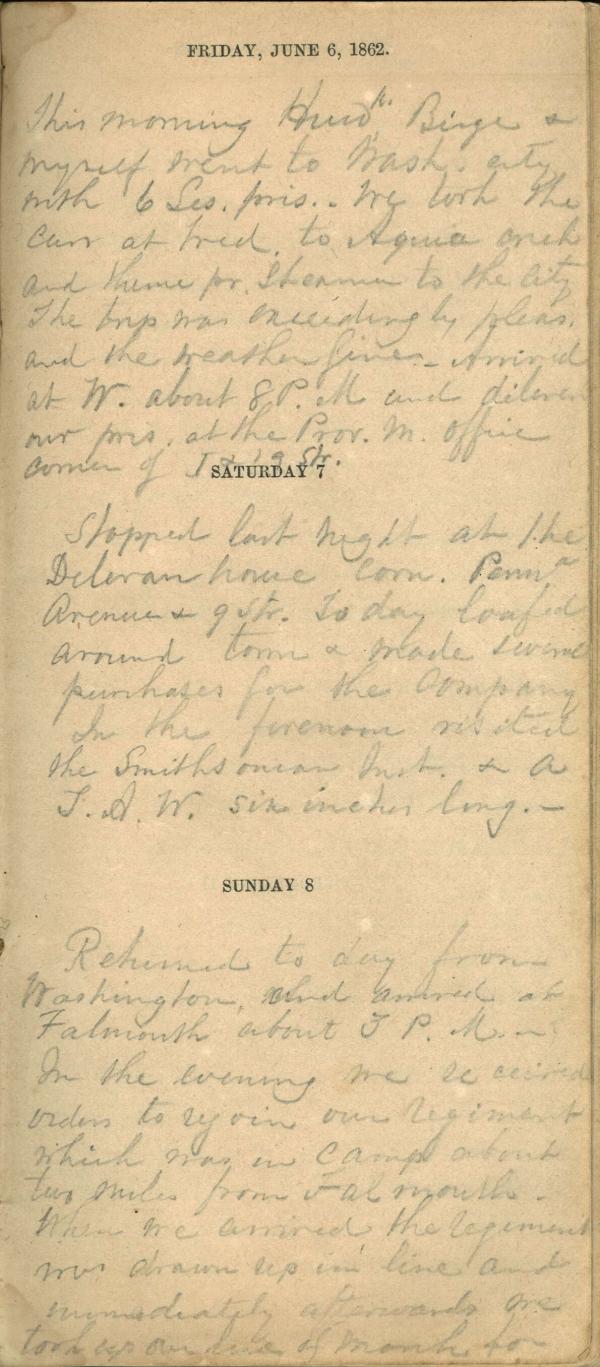 FRIDAY, JUNE 6, 1862.
This morning Birge &
myself went to Wash. city
with 6 Ses. pris. - We took the
cars at Fred. to Aquia creek
and thence pr. Steamer to the city
The trip was exceedingly pleas.
and the weather fine. - Arrived
at W. about 8 P. M and deliver
our pris. at the Prov. M. office
corner of I & 19 Str.
SATURDAY 7
Stopped last night at the
Delevan house corn. Penna
Avenue & 9 Str. To day loafed
around town & made several
purchases for the Company
In the forenoon visited
the Smithsonian Inst. & a
T. A. W. six inches long. -
SUNDAY 8
Returned to day from
Washington, and arrived at
Falmouth about 3 P. M. -
In the evening we received
orders to rejoin our regiment
which was in camp about
two miles from Falmouth.
When we arrived the regiment
was drawn up in line and
immediately afterwards we
took up our line of march for